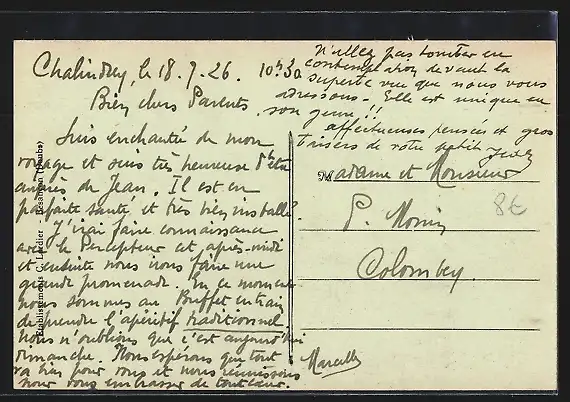 Chalindrey, le 18.7.26. 10h30
Bien chers Parents.
Suis enchantée de mon
voyage et suis très heureuse d'être
auprès de Jean. Il est en
parfaite santé et très bien installé.
J'irai faire connaissance
avec le Percepteur cet après-midi
et ensuite nous irons faire une
grande promenade. En ce moment
nous sommes au Buffet en train
de prendre l'apéritif traditionnel
nous n'oublions que c'est aujourd'hui
dimanche. Nous espérons que tout
va bien pour vous et nous réunissons
pour vous embrasser de tout cœur.
Marcelle
N'allez pas tomber en
contemplation devant la
superbe vue que nous vous
adressons. Elle est unique en
son genre !!
affectueuses pensées et gros
baisers de votre petit Jean
Madame et Monsieur
P.
Colombey
8€
Etablissements C. Lardier - Besançon (Doubs)